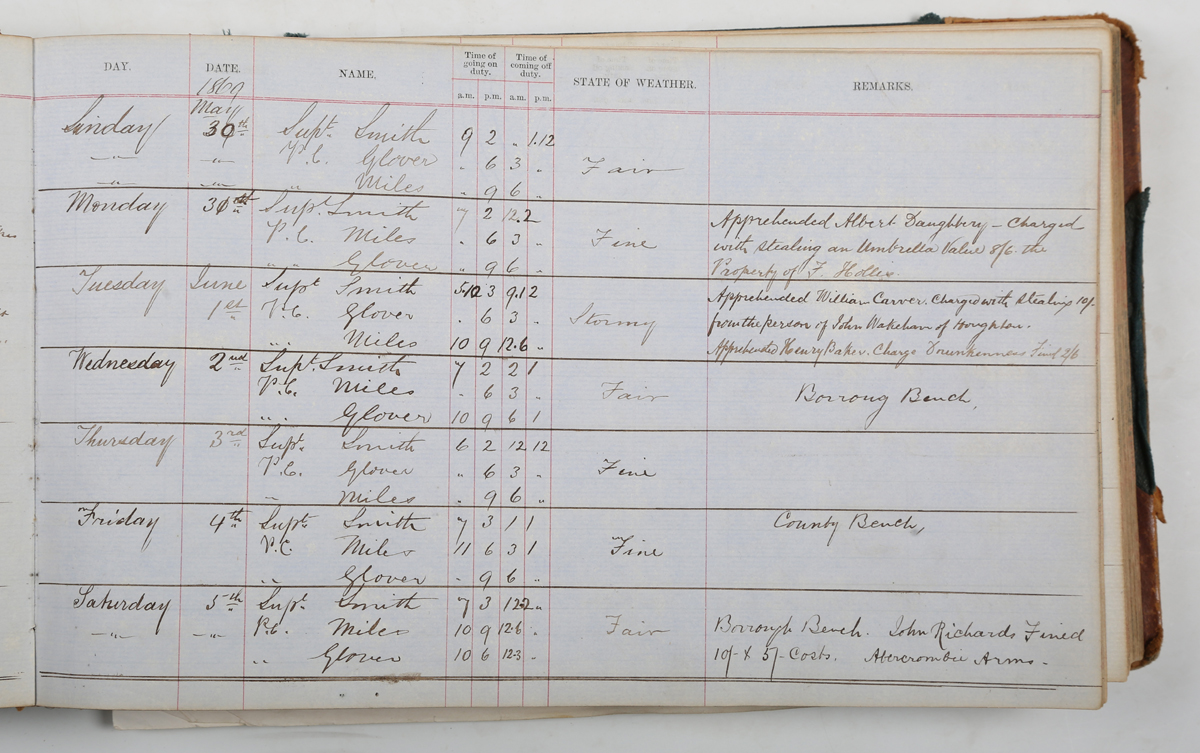 DAY. DATE. NAME. Time of going on duty. Time of coming off duty. STATE OF WEATHER. REMARKS.
a.m. p.m. a.m. p.m.
1869
May
Sunday 30th Supt. Smith 9 2 " 1.12
" " P.C. Glover " 6 3 " Fair
" " " Miles " 9 6 "
Monday 31st Supt. Smith 7 2 12.2 Apprehended Albert Daughtery - Charged
P.C. Miles " 6 3 " Fine with stealing an Umbrella Value 8/6. the
" " Glover " 9 6 " Property of F. Hollis.
Tuesday June Supt Smith 5.12 3 9.12 Apprehended William Carver. Charged with Stealing 10/-
1st P.C. Glover " 6 3 " Stormy from the person of John Wakeham of Houghton.
" " Miles 10 9 12.6 " Apprehended Henry Baker. Charge Drunkenness Fined 2/6
Wednesday 2nd Supt. Smith 7 2 2 1
P.C. Miles " 6 3 " Fair Borroug Bench,
" " Glover 10 9 6 1
Thursday 3rd Supt. Smith 6 2 12 12
P.C. Glover " 6 3 " Fine
" Miles " 9 6 "
Friday 4th Supt. Smith 7 3 1 1 County Bench,
P.C. Miles 11 6 3 1 Fine
" " Glover - 9 6 "
Saturday 5th Supt. Smith 7 3 12.2 "
" " P.C. Miles 10 9 12.6 " Fair Borrough Bench. John Richards Fined
" " Glover 10 6 12.3 " 10/- & 5/- Costs. Abercrombie Arms.